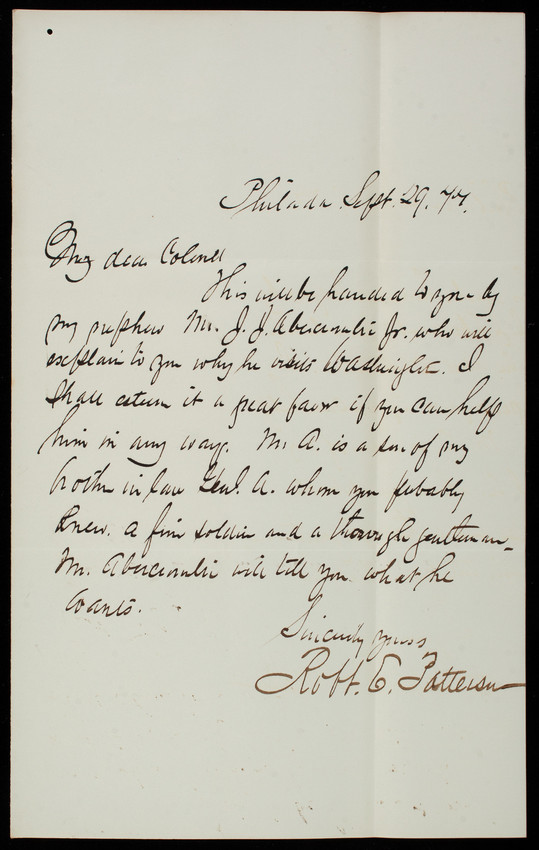 Philada. Sept. 29. 77.
My dear Colonel
This will be handed to you by
my nephew Mr. J. J. Abercrombie Jr. who will
explain to you why he visits Washington. I
shall esteem it a great favor if you can help
him in any way. Mr A. is a son of my
brother in law Genl. A. whom you probably
knew. a fine soldier and a thorough gentleman_
Mr. Abercrombie will tell you what he
wants.
Sincerely yours
Robt. E. Patterson